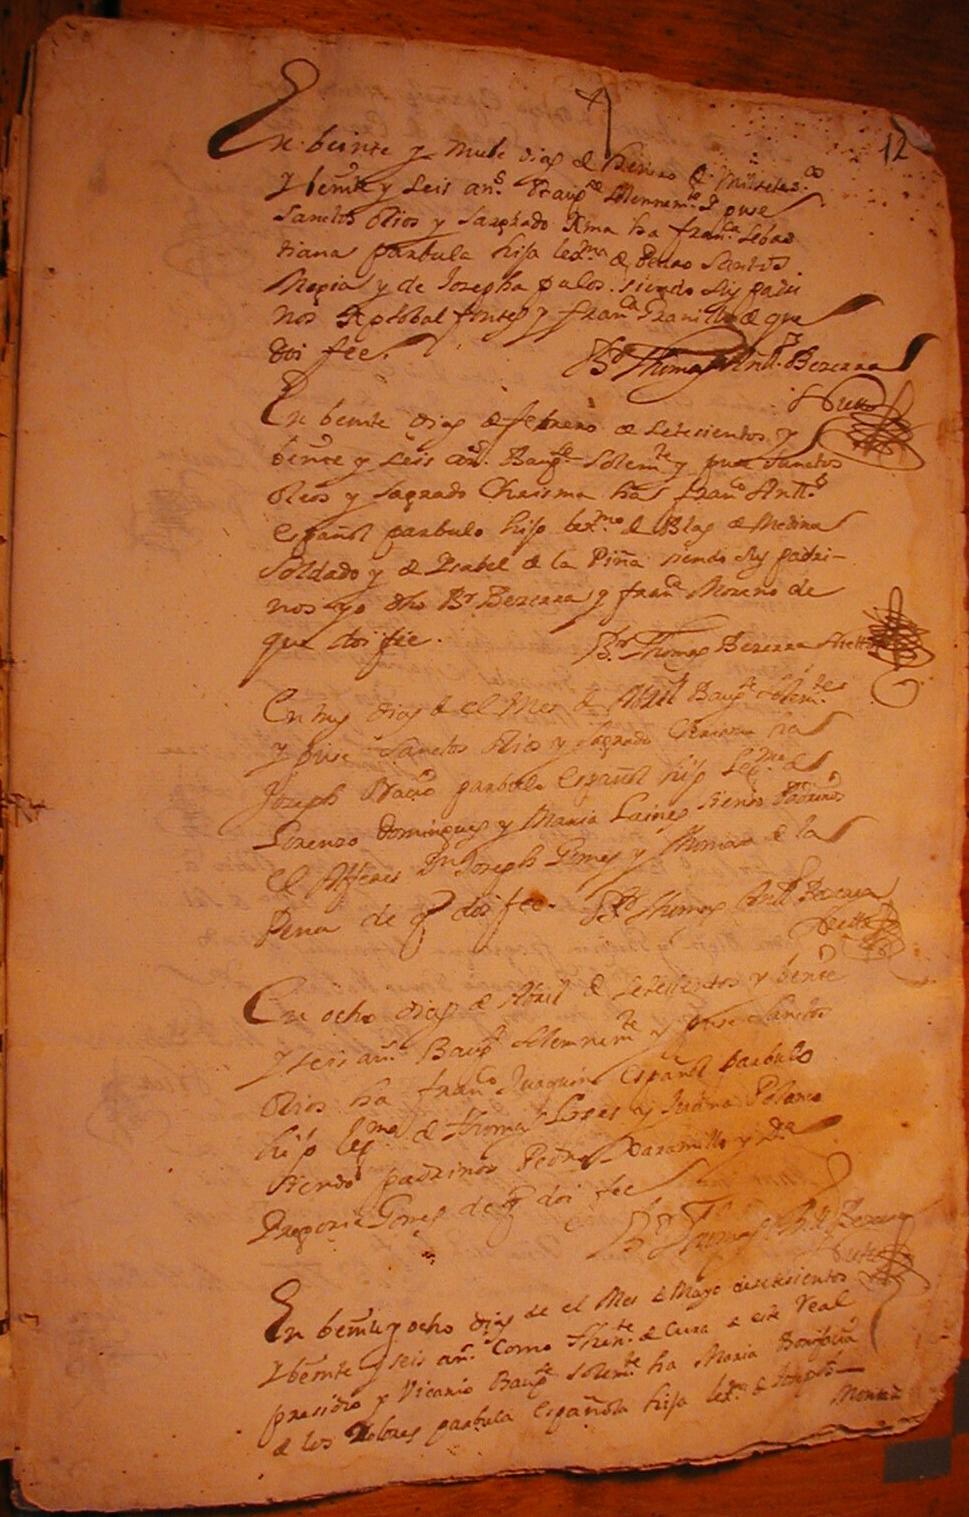 12
En beinte y nuebe dias de henero de mil setes.os
y beinte y seis an.s Baup.se solemnem.te y puse
sanctos olios y sagrado Xma ha fran.ca Sebas
tiana parbula hija lex.ma de Pedro Santos
Mexia y de Josepha palos. siendo sus padri
nos Xptobal fontes y fran.ca Granillo de que
doi fee. B.r Thomas Antt.o Bezerra
Nietto
En beinte dias de febrero de setesientos y
beinte y seis an.s Baup.se solem.te y puse sanctos
oleos y sagrado Chrisma has fran.co Antt.o
español parbulo hijo lex.mo de Blas de Medina
soldado y de Ysabel de la Piña siendo sus padri-
nos yo dho B.r Bezerra y fran.ca Moreno de
que doi fee. B.r Thomas Bezerra Nietto
En tres dias de el Mes de Abril Baup.se solem.te
y puse sanctos olios y sagrado Chrisma ha
Joseph parbulo español hijo Leg.mo de
Lorenso Dominguez y Maria Laines siendo Padrinos
el Alferes D.n Joseph Gomes y Thomasa de la
Pena de q doi fee. B.r Thomas Antt.o Bezerra
Nietto
En ocho dias de Abril de setesientos y beinte
y seis an.s Baup.se solemnem.te y puse sanctos
olios ha fran.co Juaquin español parbulo
hijo leg.mo de Thomas Lopes y Juana Polanco
siendo padrinos Pedro Jaramillo y D.a
Gregoria Gomes de q doi fee
B.r Thomas Antt.o Bezerra
Nietto
En beinte y ocho dias de el Mes de Mayo de setesientos
y beinte y seis an.s como Then.te de Cura de este Real
presidio y Vicario Baup.se solem.te ha Maria Bonifacia
de los Dolores parbula española hija lex.ma de